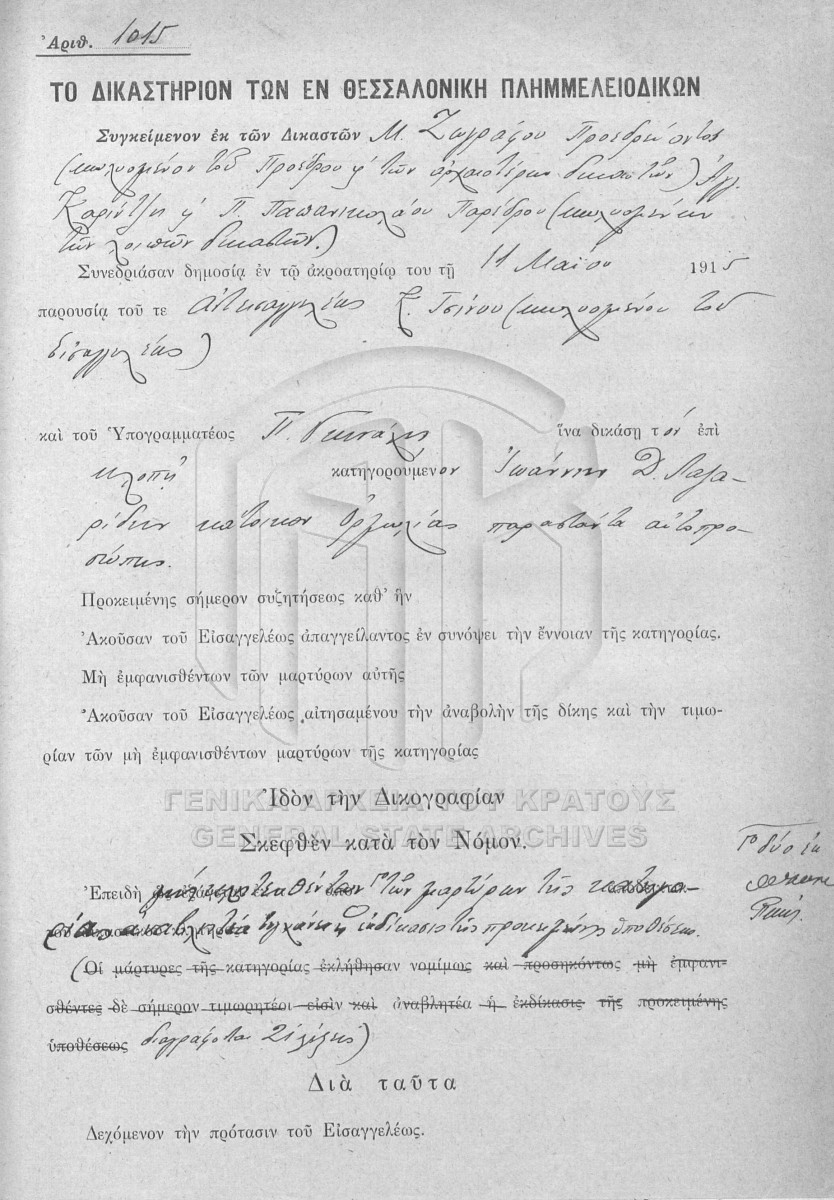 Ἀριθ. 1015
ΤΟ ΔΙΚΑΣΤΗΡΙΟΝ ΤΩΝ ΕΝ ΘΕΣΣΑΛΟΝΙΚΗ ΠΛΗΜΜΕΛΕΙΟΔΙΚΩΝ
Συγκείμενον ἐκ τῶν Δικαστῶν Μ. Ζωγράφου Προεδρεύοντος
(κωλυομένου τοῦ Προέδρου τῶν ἀρχαιοτέρων δικαστῶν)
Π. Παπανικολάου Παρέδρου (κωλυομένων
τῶν λοιπῶν δικαστῶν.)
Συνεδριάσαν δημοσίᾳ ἐν τῷ ἀκροατηρίῳ του τῇ 11 Μαΐου 1915
παρουσίᾳ τοῦ τε ἀντεισαγγελέως Κ. Τσίνου (κωλυομένου τοῦ
εἰσαγγελέως)
καὶ τοῦ Ὑπογραμματέως Π. ἵνα δικάσῃ τόν ἐπὶ
κλοπῇ κατηγορούμενον Ἰωάννην Δ. Λαζα-
ρίδην κάτοικον παραστάντα αὐτοπρο-
σώπως.
Προκειμένης σήμερον συζητήσεως καθ' ἣν
Ἀκοῦσαν τοῦ Εἰσαγγελέως ἀπαγγείλαντος ἐν συνόψει τὴν ἔννοιαν τῆς κατηγορίας.
Μὴ ἐμφανισθέντων τῶν μαρτύρων αὐτῆς
Ἀκοῦσαν τοῦ Εἰσαγγελέως αἰτησαμένου τὴν ἀναβολὴν τῆς δίκης καὶ τὴν τιμω-
ρίαν τῶν μὴ ἐμφανισθέντων μαρτύρων τῆς κατηγορίας
Ἰδὸν τὴν Δικογραφίαν
ΓΕΝΙΚΑ ΑΡΧΕΙΑ ΤΟΥ ΚΡΑΤΟΥΣ
GENERAL STATE ARCHIVES
Σκεφθὲν κατὰ τὸν Νόμον.
Γο δύο ἐκ
Ἐπειδὴ τῶν μαρτύρων τῆς κατηγο-
ρίας ἀναβλητέα τυγχάνει ἡ ἐκδίκασις τῆς προκειμένης ὑποθέσεως.
(Οἱ μάρτυρες τῆς κατηγορίας ἐκλήθησαν νομίμως καὶ προσηκόντως μὴ ἐμφανι-
σθέντες δὲ σήμερον τιμωρητέοι εἰσὶν καὶ ἀναβλητέα ἡ ἐκδίκασις τῆς προκειμένης
ὑποθέσεως διαγράφονται 21 λέξεις)
Διὰ ταῦτα
Δεχόμενον τὴν πρότασιν τοῦ Εἰσαγγελέως.